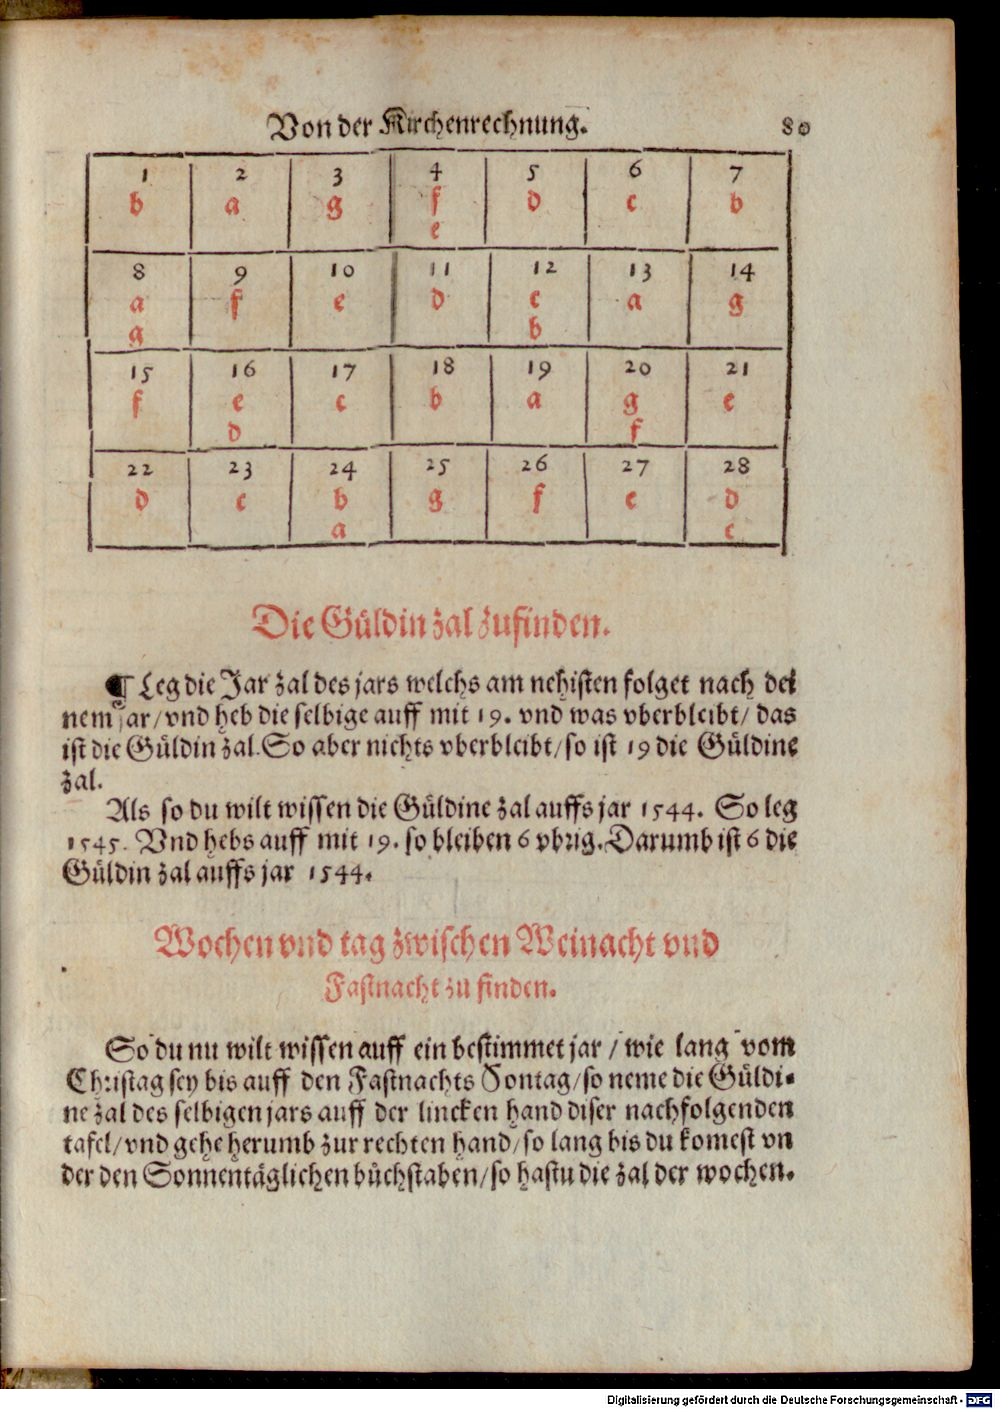 Von der Kirchenrechnung. 80
1 2 3 4 5 6 7
b a g f d c b
e
8 9 10 11 12 13 14
a f e d c a g
g b
15 16 17 18 19 20 21
f e c b a g e
d f
22 23 24 25 26 27 28
d c b g f e d
a c
Die Güldin zal zufinden.
¶ Leg die Jar zal des jars welchs am nehisten folget nach dei
nem jar/vnd heb die selbige auff mit 19. vnd was vberbleibt/ das
ist die Güldin zal. So aber nichts vberbleibt/so ist 19 die Güldine
zal.
Als so du wilt wissen die Güldine zal auffs jar 1544. So leg
1545. Vnd hebs auff mit 19. so bleiben 6 vbrig. Darumb ist 6 die
Güldin zal auffs jar 1544.
Wochen vnd tag zwischen Weinacht vnd
Fastnacht zu finden.
So du nu wilt wissen auff ein bestimmet jar / wie lang vom
Christag sey bis auff den Fastnachts Sontag/so neme die Güldi-
ne zal des selbigen jars auff der lincken hand diser nachfolgenden
tafel/vnd gehe herumb zur rechten hand/so lang bis du komest vn
der den Sonnentäglichen büchstaben/so hastu die zal der wochen.
Digitalisierung gefördert durch die Deutsche Forschungsgemeinschaft - DFG